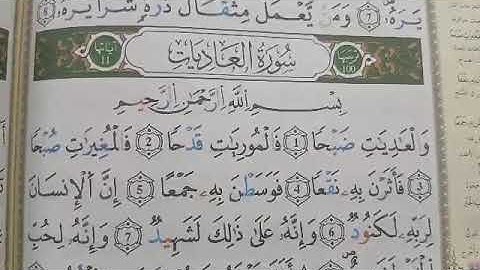 يَرَهُۥ ٧ وَمَن يَعْمَلْ مِثْقَالَ ذَرَّةٍ شَرًّا يَرَهُۥ ٨
آياتها ١١ سُورَةُ الْعَادِيَاتِ ترتيبها ١٠٠
بِسْمِ اللَّهِ الرَّحْمَٰنِ الرَّحِيمِ
وَالْعَٰدِيَٰتِ ضَبْحًا ١ فَالْمُورِيَٰتِ قَدْحًا ٢ فَالْمُغِيرَٰتِ صُبْحًا
٣ فَأَثَرْنَ بِهِۦ نَقْعًا ٤ فَوَسَطْنَ بِهِۦ جَمْعًا ٥ إِنَّ الْإِنسَانَ
لِرَبِّهِۦ لَكَنُودٌ ٦ وَإِنَّهُۥ عَلَىٰ ذَٰلِكَ لَشَهِيدٌ ٧ وَإِنَّهُۥ لِحُبِّ